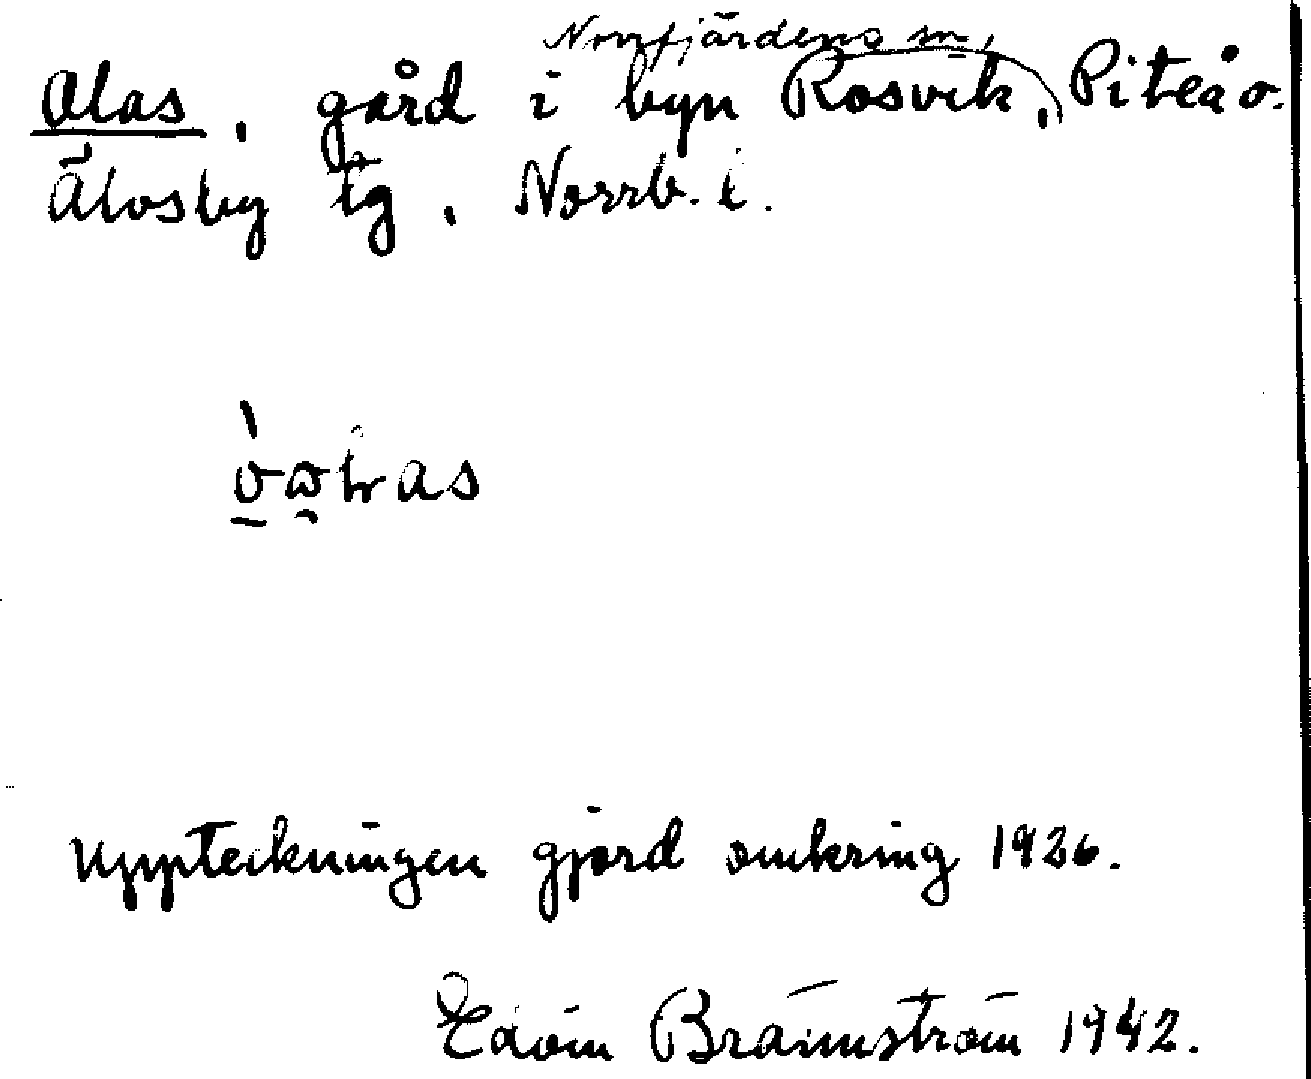 Norrfjärdens sn,
Olas, gård i byn Rosvik, Piteå o.
Älvsby tg, Norrb. l.
Uppteckningen gjord omkring 1926.
Edvin Brännström 1942.